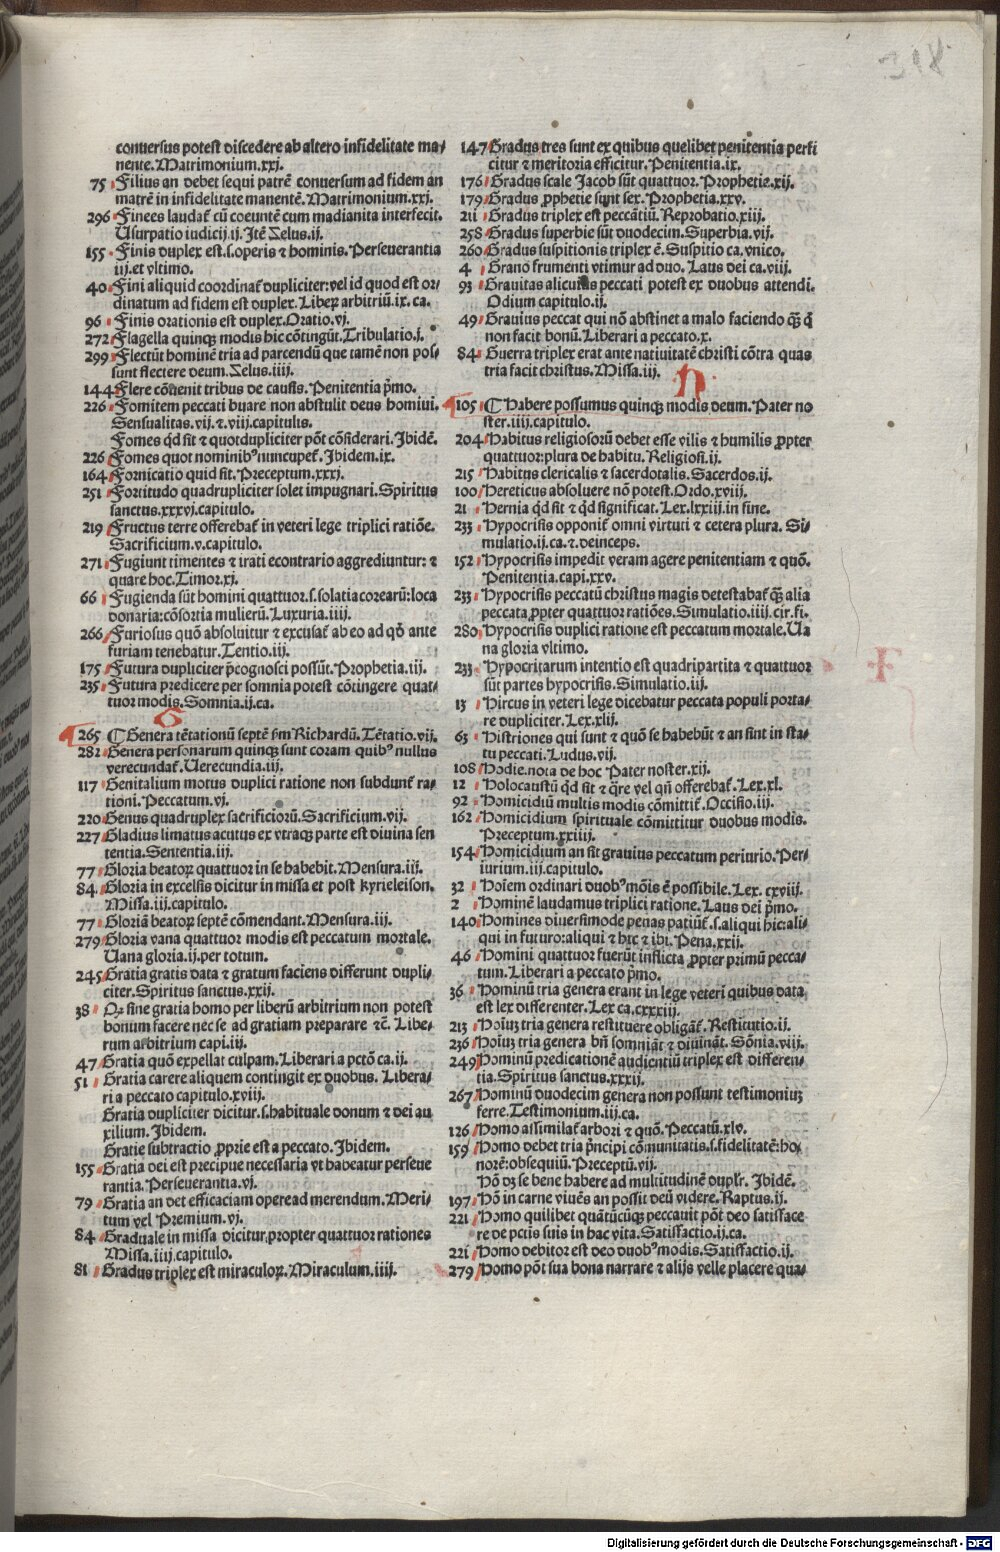 318.
conuersus potest discedere ab altero infidelitate ma⸗
nente. Matrimonium. xxj.
75 Filius an debet sequi patrē conuersum ad fidem an
matrē in infidelitate manentē. Matrimonium. xxj.
296 Finees laudať cū coeuntē cum madianita interfecit.
Usurpatio iudicij. ij. Itē Zelus. ij.
155 Finis duplex est. s. operis ⁊ hominis. Perseuerantia
iij. et vltimo.
40 Fini aliquid coordinať dupliciter: vel id quod est or⸗
dinatum ad fidem est duplex. Liberꝫ arbitriū. ix. ca.
96 Finis orationis est duplex. Oratio. vj.
272 Flagella quinqꝫ modis hic cōtingūt. Tribulatio. j.
299 Flectūt hominē tria ad parcendū que tamē non pos⸗
sunt flectere deum. Zelus. iiij.
144 Flere cōuenit tribus de causis. Penitentia p̄mo.
226 Fomitem peccati quare non abstulit deus homini.
Sensualitas. vij. ⁊. viij. capitulis.
Fomes qd sit ⁊ quotdupliciter pōt cōsiderari. Ibidē.
226 Fomes quot nominibꝰ nuncupeť. Ibidem. ix.
164 Fornicatio quid sit. Preceptum. xxxj.
251 Fortitudo quadrupliciter solet impugnari. Spiritus
sanctus. xxxvj. capitulo.
219 Fructus terre offerebať in veteri lege triplici ratiōe.
Sacrificium. v. capitulo.
271 Fugiunt timentes ⁊ irati econtrario aggrediuntur: ⁊
quare hoc. Timor. xj.
66 Fugienda sūt homini quattuor. s. solatia corearū: loca
donaria: cōsortia mulierū. Luxuria. iiij.
266 Furiosus quō absoluitur ⁊ excusať ab eo ad qd̄ ante
furiam tenebatur. Tentio. iij.
175 Futura dupliciter p̄cognosci possūt. Prophetia. iij.
235 Futura predicere per somnia potest cōtingere quat⸗
tuor modis. Somnia. ij. ca.
G
265 ¶ Genera tētationū septē sm̄ Richardū. Tētatio. vij.
282 Genera personarum quinqꝫ sunt coram quibꝰ nullus
verecundať. Uerecundia. iij.
117 Genitalium motus duplici ratione non subdunť ra⸗
tioni. Peccatum. vj.
220 Genus quadruplex sacrificiorū. Sacrificium. vij.
227 Gladius limatus acutus ex vtraqꝫ parte est diuina sen
tentia. Sententia. iij.
77 Gloria beatoꝝ quattuor in se habebit. Mensura. iij.
84 Gloria in excelsis dicitur in missa et post kyrieleison.
Missa. iij. capitulo.
77 Gloriā beatoꝝ septē cōmendant. Mensura. iij.
279 Gloria vana quattuor modis est peccatum mortale.
Uana gloria. ij. per totum.
245 Gratia gratis data ⁊ gratum faciens differunt dupli⸗
citer. Spiritus sanctus. xxij.
38 Qꝫ sine gratia homo per liberū arbitrium non potest
bonum facere nec se ad gratiam preparare ⁊c̄. Libe⸗
rum arbitrium capi. iij.
47 Gratia quō expellat culpam. Liberari a pctō ca. ij.
51 Gratia carere aliquem contingit ex duobus. Libera⸗
ri a peccato capitulo. xviij.
Gratia dupliciter dicitur. s. habituale donum ⁊ dei au
xilium. Ibidem.
Gratie subtractio ꝓprie est a peccato. Ibidem.
155 Gratia dei est precipue necessaria vt habeatur perseue
rantia. Perseuerantia. vj.
79 Gratia an det efficaciam opere ad merendum. Meri⸗
tum vel Premium. vj.
84 Graduale in missa dicitur propter quattuor rationes
Missa. iiij. capitulo.
81 Gradus triplex est miraculoꝝ. Miraculum. iiij.
147 Gradus tres sunt ex quibus quelibet penitentia perfi
citur ⁊ meritoria efficitur. Penitentia. ix.
176 Gradus scale Jacob sūt quattuor. Prophetie. xij.
179 Gradus ꝓphetie sunt sex. Prophetia. xxv.
211 Gradus triplex est peccātiū. Reprobatio. xiij.
258 Gradus superbie sūt duodecim. Superbia. vij.
260 Gradus suspitionis triplex ē. Suspitio ca. vnico.
4 Grano frumenti vtimur ad duo. Laus dei ca. viij.
93 Grauitas alicuius peccati potest ex duobus attendi.
Odium capitulo. ij.
49 Grauius peccat qui nō abstinet a malo faciendo qꝫ̄ q̄
non facit bonū. Liberari a peccato. x.
84 Guerra triplex erat ante natiuitatē christi cōtra quas
tria facit christus. Missa. iij.
H
105 ¶ Habere possumus quinqꝫ modis deum. Pater no
ster. iiij. capitulo.
204 Habitus religiosorū debet esse vilis ⁊ humilis ꝓpter
quattuor: plura de habitu. Religiosi. ij.
215 Habitus clericalis ⁊ sacerdotalis. Sacerdos. ij.
100 Hereticus absoluere nō potest. Ordo. xviij.
21 Hernia qd sit ⁊ qd significat. Lex. lxxiij. in fine.
233 Hypocrisis opponiť omni virtuti ⁊ cetera plura. Si⸗
mulatio. ij. ca. ⁊. deinceps.
152 Hypocrisis impedit veram agere penitentiam ⁊ quō.
Penitentia. capi. xxv.
233 Hypocrisis peccatū christus magis detestabať qꝫ̄ alia
peccata ꝓpter quattuor ratiōes. Simulatio. iiij. cir. fi.
280 Hypocrisis duplici ratione est peccatum mortale. Ua
na gloria vltimo.
233 Hypocritarum intentio est quadripartita ⁊ quattuor
sūt partes hypocrisis. Simulatio. iij.
13 Hircus in veteri lege dicebatur peccata populi porta⸗
re dupliciter. Lex. xlij.
63 Histriones qui sunt ⁊ quō se habebūt ⁊ an sint in sta⸗
tu peccati. Ludus. vij.
108 Hodie. nota de hoc Pater noster. xij.
12 Holocaustū qd sit ⁊ q̄re vel qn̄ offerebať. Lex. xl.
92 Homicidiū multis modis cōmittiť. Occisio. iij.
162 Homicidium spirituale cōmittitur duobus modis.
Preceptum. xxiiij.
154 Homicidium an sit grauius peccatum periurio. Per⸗
iurium. iij. capitulo.
32 Hoīem ordinari duobꝰ mōis ē possibile. Lex. cxviij.
2 Hominē laudamus triplici ratione. Laus dei p̄mo.
140 Homines diuersimode penas patiūť. s. aliqui hic: ali⸗
qui in futuro: aliqui ⁊ hic ⁊ ibi. Pena. xxij.
46 Homini quattuor fuerūt inflicta ꝓpter primū pecca⸗
tum. Liberari a peccato p̄mo.
36 Hominū tria genera erant in lege veteri quibus data
est lex differenter. Lex ca. cxxxiij.
213 Hoīuꝫ tria genera restituere obliganť. Restitutio. ij.
236 Hoīuꝫ tria genera bn̄ somniāt ⁊ diuināt. Sōnia. viij.
249 Hominū predicationē audientiū triplex est differen⸗
tia. Spiritus sanctus. xxxij.
267 Hominū duodecim genera non possunt testimoniuꝫ
ferre. Testimonium. iij. ca.
126 Homo assimilať arbori ⁊ quō. Peccatū. xlv.
159 Homo debet tria p̄ncipi cōmunitatis. s. fidelitatē: ho⸗
norē: obsequiū. Preceptū. vij.
Hō dꝫ se bene habere ad multitudinē duplr̄. Ibidē.
197 Hō in carne viuēs an possit deū videre. Raptus. ij.
221 Homo quilibet quātūcūqꝫ peccauit pōt deo satisface
re de pctis suis in hac vita. Satisfactio. ij. ca.
221 Homo debitor est deo duobꝰ modis. Satisfactio. ij.
279 Homo pōt sua bona narrare ⁊ alijs velle placere qua⸗
Digitalisierung gefördert durch die Deutsche Forschungsgemeinschaft - DFG